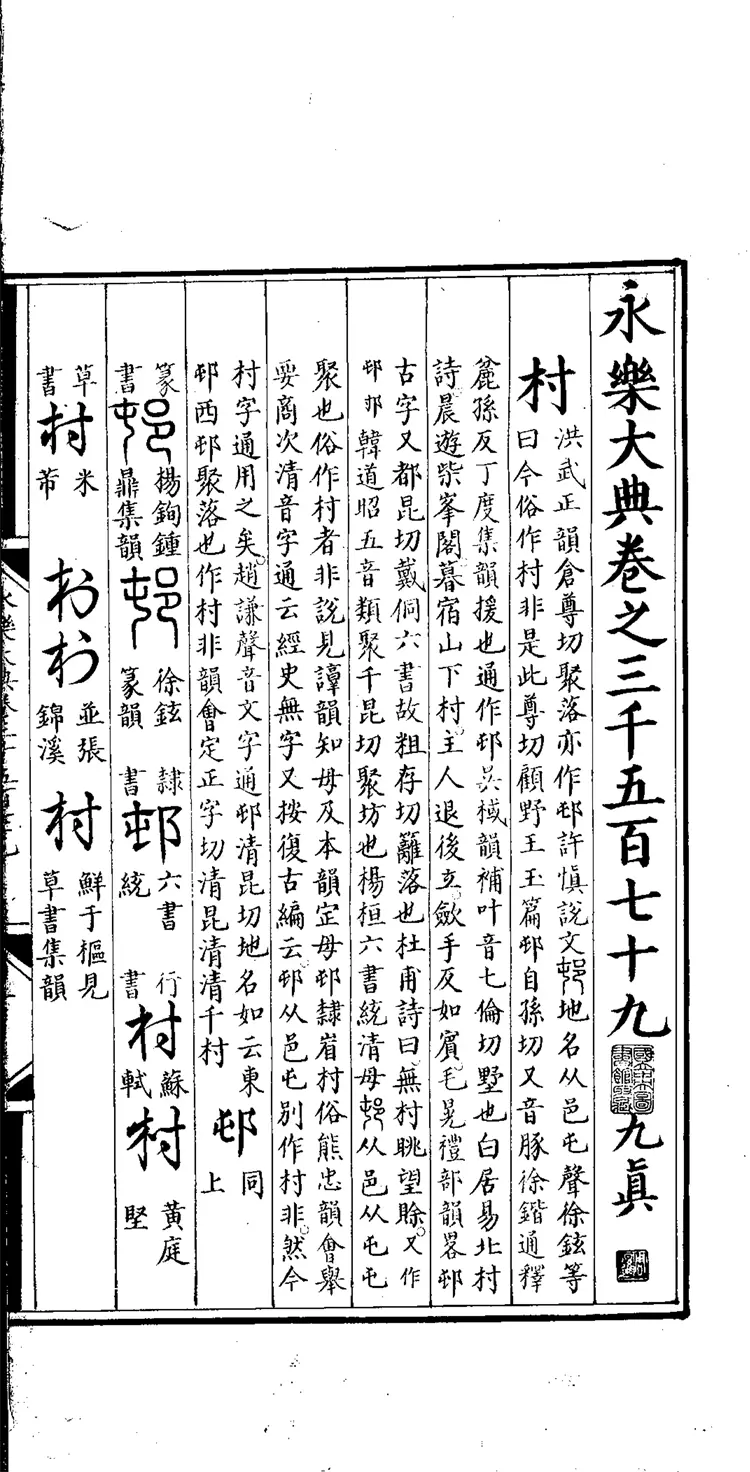 永樂大典卷之三千五百七十九 九眞
村
洪武正韻倉尊切聚落亦作邨許愼說文邨地名从邑屯聲徐鉉等
曰今俗作村非是此尊切顧野王玉篇邨自孫切又音豚徐鍇通釋
麄孫反丁度集韻援也通作邨吳棫韻補叶音七倫切墅也白居易北村
詩晨遊柴峯閣暮宿山下村主人退後立歛手反如賓毛晃禮部韻畧邨
古字又都昆切戴侗六書故粗存切籬落也杜甫詩曰無村眺望賒又作
邨邘韓道昭五音類聚千昆切聚坊也楊桓六書統清母邨从邑从屯屯
聚也俗作村者非說見諄韻知母及本韻定母邨隸省村俗熊忠韻會舉
要商次清音字通云經史無字又按復古編云邨从邑屯別作村非然今
村字通用之矣趙謙聲音文字通邨清昆切地名如云東
邨西邨聚落也作村非韻會定正字切清昆清清千村
邨 同上
篆書 邨 楊鉤鍾鼎集韻 邨 徐鉉篆韻 隷書 邨 六書統 行書 村 蘇軾 村 黃庭堅
草書 村 米芾 村 村 並張錦溪 村 鮮于樞見草書集韻